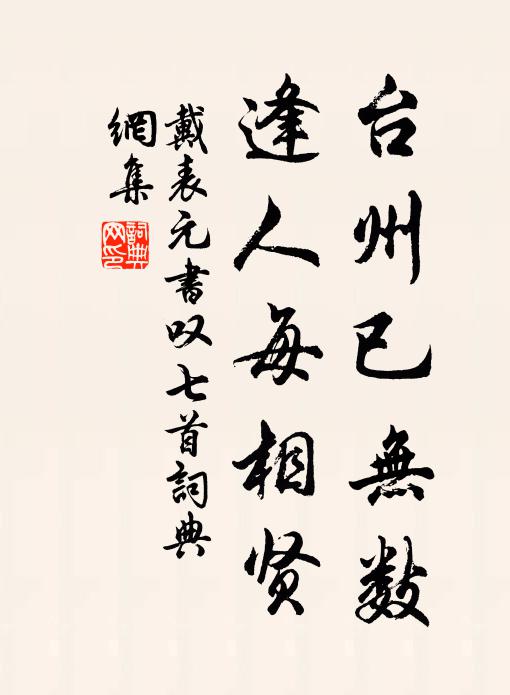 台州已無数
逢人每相贤
戴表元書叹七首詞典
網集
詞典网印